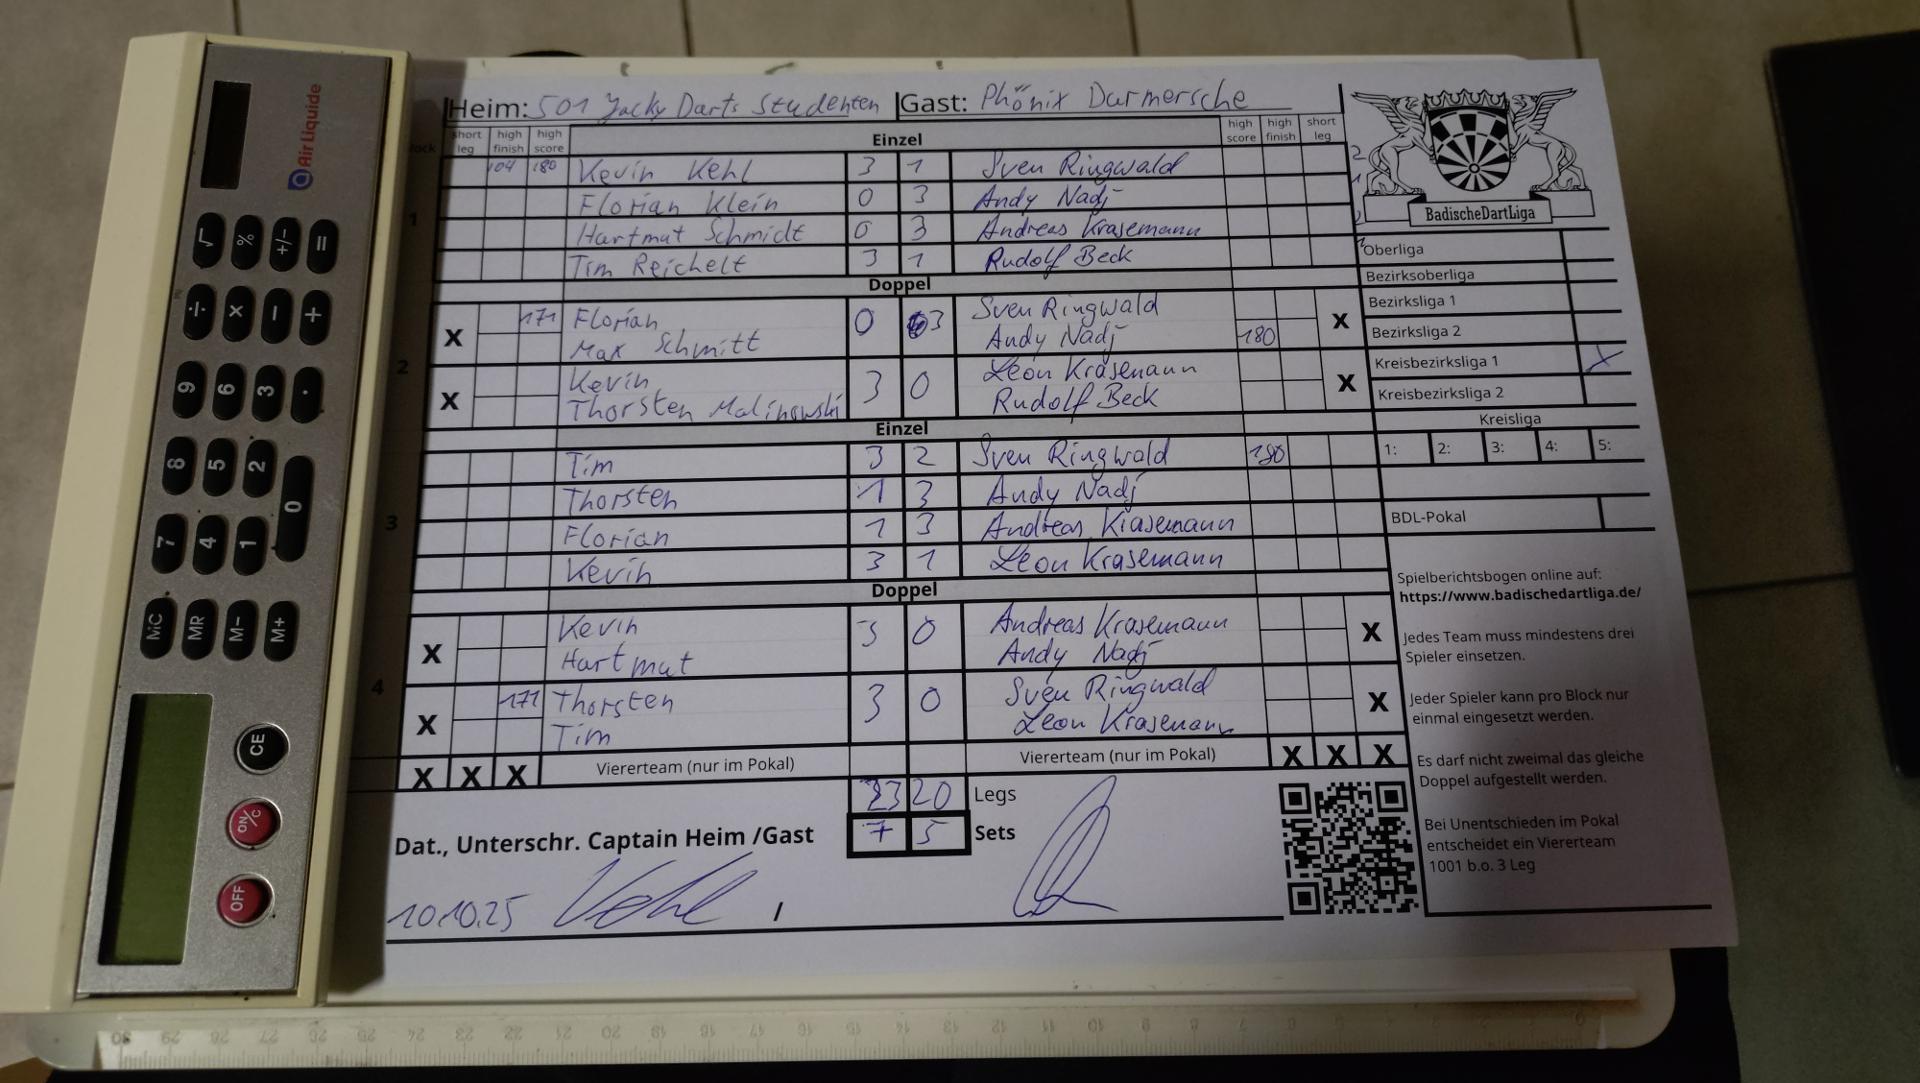 Heim: 501 Jacky Darts Studenten Gast: Phönix Darmersche
short leg high finish high score Einzel high score high finish short leg
104 180 Kevin Kehl 3 1 Sven Ringwald
1 Florian Klein 0 3 Andy Nadj
Hartmut Schmidt 0 3 Andreas Krasemann
Tim Reichelt 3 1 Rudolf Beck
Doppel
X 171 Florian 0 3 Sven Ringwald X
Max Schmitt Andy Nadj 180
2
X Kevin 3 0 Leon Krasemann X
Thorsten Malinowski Rudolf Beck
Einzel
Tim 3 2 Sven Ringwald 180
Thorsten 1 3 Andy Nadj
3 Florian 1 3 Andreas Krasemann
Kevin 3 1 Leon Krasemann
Doppel
X Kevin 3 0 Andreas Krasemann X
Hartmut Andy Nadj
4
X 171 Thorsten 3 0 Sven Ringwald X
Tim Leon Krasemann
X X X Viererteam (nur im Pokal) Viererteam (nur im Pokal) X X X
23 20 Legs
7 5 Sets
Dat., Unterschr. Captain Heim /Gast
10.10.25 Kehl /
BadischeDartLiga
Oberliga
Bezirksoberliga
Bezirksliga 1
Bezirksliga 2
Kreisbezirksliga 1 X
Kreisbezirksliga 2
Kreisliga
1: 2: 3: 4: 5:
BDL-Pokal
Spielberichtsbogen online auf:
https://www.badischedartliga.de/
Jedes Team muss mindestens drei
Spieler einsetzen.
Jeder Spieler kann pro Block nur
einmal eingesetzt werden.
Es darf nicht zweimal das gleiche
Doppel aufgestellt werden.
Bei Unentschieden im Pokal
entscheidet ein Viererteam
1001 b.o. 3 Leg
Air Liquide
√ % +/- =
÷ × − +
9 6 3 .
8 5 2 0
7 4 1
MC MR M− M+
CE
ON/C
OFF
30 29 28 27 26 25 24 23 22 21 20 19 18 17 16 15 14 13 12 11 10 9 8 7 6 5 4 3 2 1 0